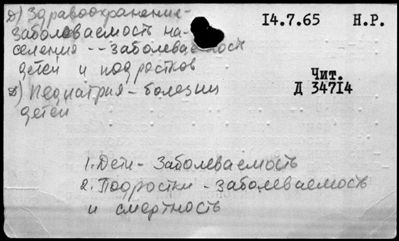 Д) Здравоохранение-
заболеваемость на-
селения -- заболеваемость
детей и подростков
Д) Педиатрия - болезни
детей
14.7.65 Н.Р.
Чит.
Д 34714
1. Дети - Заболеваемость
2. Подростки - заболеваемость
и смертность